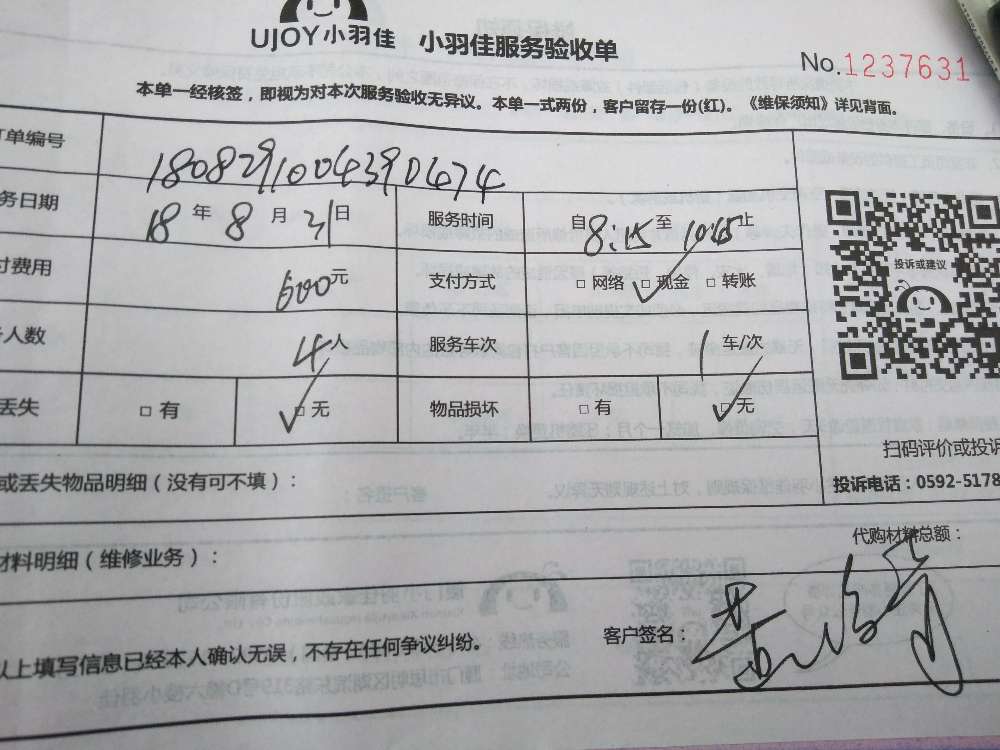 UJOY小羽佳 小羽佳服务验收单
No.1237631
本单一经核签，即视为对本次服务验收无异议。本单一式两份，客户留存一份(红)。《维保须知》详见背面。
单编号 1808291004390474
务日期 18 年 8 月 31 日 服务时间 自 8.15 至 10.15 止
付费用 600 元 支付方式 □ 网络 ☑ 现金 □ 转账
人数 4 人 服务车次 1 车/次
丢失 □ 有 ☑ 无 物品损坏 □ 有 ☑ 无
投诉或建议
扫码评价或投诉
投诉电话：0592-5178
或丢失物品明细（没有可不填）：
材料明细（维修业务）：
代购材料总额：
以上填写信息已经本人确认无误，不存在任何争议纠纷。
客户签名：